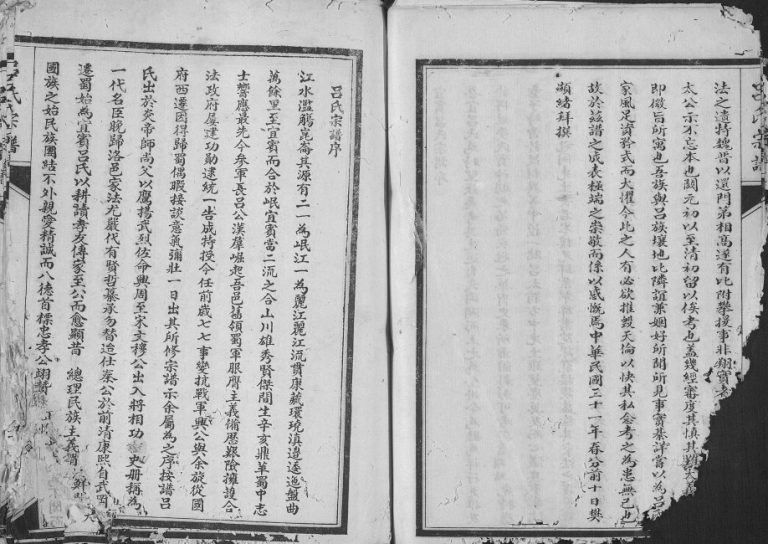 呂氏宗譜
法之遺特魏晋以還門第相高遂有比附攀援事非翔實考
太公示不忘本也闕元初以至清初留以俟考也蓋幾經審度其慎其難
即微旨所寓也吾族與呂族壤地比隣誼兼姻好所聞所見事實綦詳嘗以為呂
家風足資矜式而大懼今此之人有必欲推天倫以快其私念考之為患無已也
故於茲譜之成表極端之崇敬而係以感慨焉中華民國三十一年春分前十日樊
顯緒拜撰
呂氏宗譜序
江水濫觴崑崙其源有二一為岷江一為麗江麗江流貫康藏環瓊滇邊逶迤盤曲
萬餘里至宜賓而合於岷宜賓當二流之合山川雄秀賢傑間生辛亥鼎革蜀中志
士響應最先今參軍長呂公漢羣崛起吾邑舊領蜀軍服膺主義備歷艱險擁護合
法政府屢建功勛逮統一告成特授今任前歲七七事變抗戰軍興公與余旋從國
府西遷因得歸蜀偶暇接談意氣彌壯一日出其所修宗譜示余屬為之序按譜呂
氏出於炎帝師尚父以鷹揚武烈佐命興周至宋文穆公出入將相功史册稱為
一代名臣晚歸洛邑家法尤嚴代有賢哲纂承勿替迨仕棻公於前清康熙自武岡
遷蜀始為宜賓呂氏以耕讀孝友傳家至公而愈顯昔 總理民族主義謂
國族之始民族團結不外親愛精誠而八德首標忠孝公翊贊
呂氏宗譜